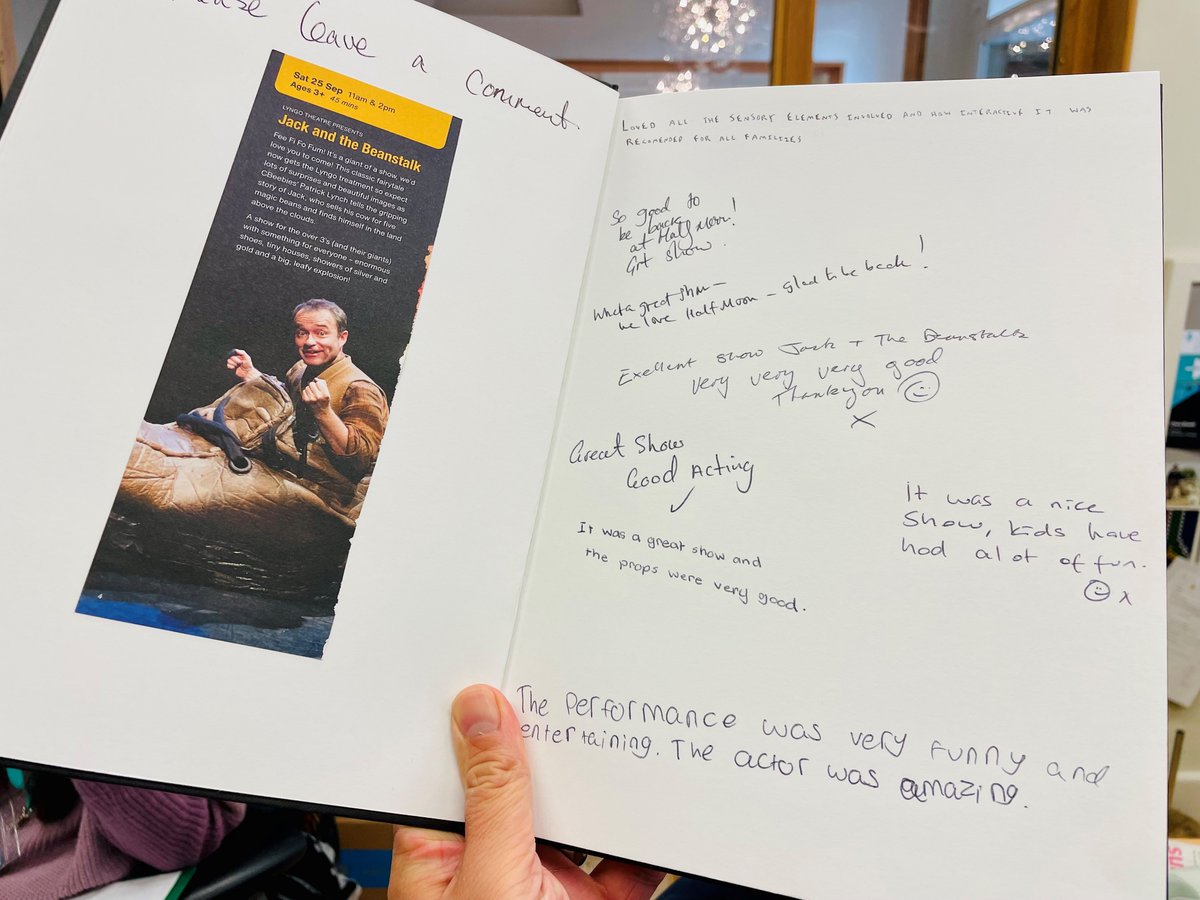 Please leave a comment
Sat 25 Sep 11am & 2pm
Ages 3+ 45 mins
LYNGO THEATRE PRESENTS
Jack and the Beanstalk
Fee Fi Fo Fum! It's a giant of a show, we'd
love you to come! This classic fairytale
now gets the Lyngo treatment so expect
lots of surprises and beautiful images as
CBeebies' Patrick Lynch tells the gripping
story of Jack, who sells his cow for five
magic beans and finds himself in the land
above the clouds.
A show for the over 3's (and their giants)
with something for everyone - enormous
shoes, tiny houses, showers of silver and
gold and a big, leafy explosion!
4
LOVED ALL THE SENSORY ELEMENTS INVOLVED AND HOW INTERACTIVE IT WAS
RECOMENDED FOR ALL FAMILIES
So good to
be back
at Half Moon!
Grt show.
What a great show -
we love Half Moon - glad to be back!
Exellent show Jack + The Beanstalk
very very very good
Thankyou
x
Great Show
Good Acting
It was a great show and
the props were very good.
It was a nice
Show, kids have
had alot of fun.
x
The Performance was very funny and
entertaining. The actor was amazing.